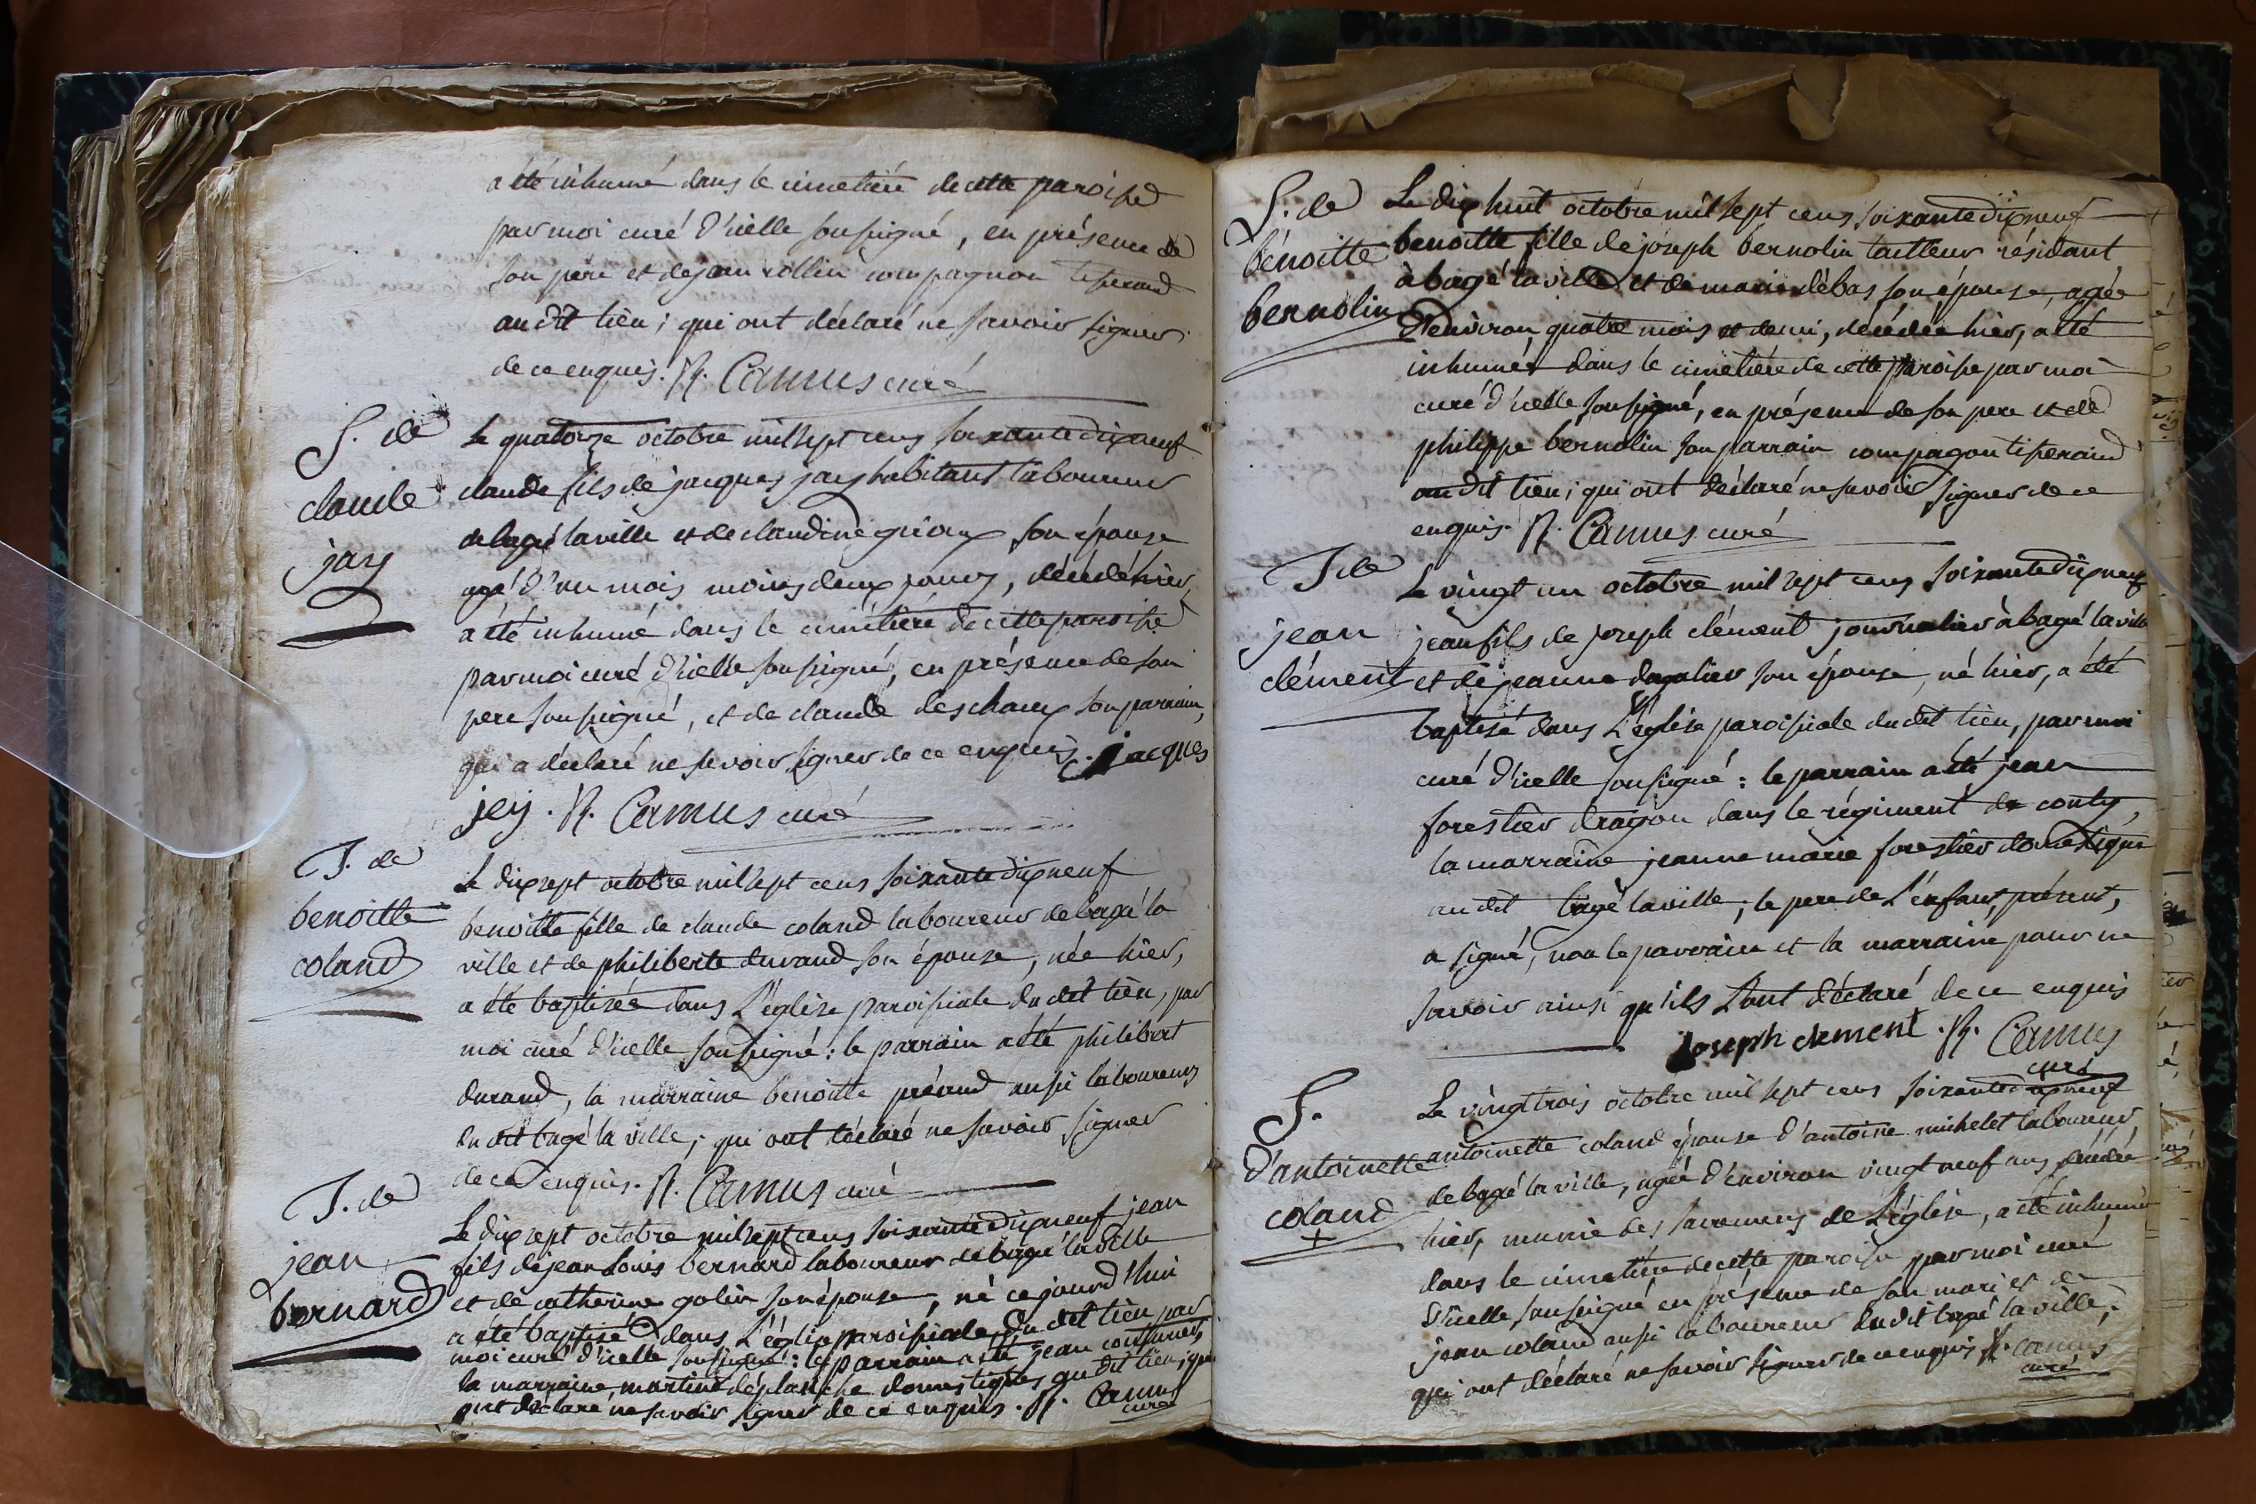 a été inhumé dans le cimetiére de cette paroisse
par moi curé d'icelle soussigné, en présence de
son pere et de jean collin compagnon tisserand
audit lieu; qui ont déclaré ne savoir signer
de ce enquis. R. Camus curé
S. de
claude
jay
Le quatorze octobre mil sept cens soixante dix neuf
claude fils de jacques jay habitant laboureur
de bagé la ville et de claudine son épouse
agé d'un mois moins deux jours, décédé hier,
a été inhumé dans le cimétiére de cette paroisse
par moi curé d'icelle soussigné, en présence de son
pere soussigné, et de claude deschaux son parrain,
qui a déclaré ne savoir signer de ce enquis. jacques
jey. R. Camus curé
J. de
benoitte
coland
Le dix sept octobre mil sept cens soixante dix neuf
benoitte fille de claude coland laboureur de bagé la
ville et de philiberte durand son épouse, née hier,
a été baptisée dans L'église paroissiale du dit lieu, par
moi curé d'icelle soussigné: le parrain a été philibert
durand, la marraine benoitte préaud aussi laboureurs
du dit bagé la ville; qui ont déclaré ne savoir signer
de ce enquis. R. Camus curé
J. de
jean
bernard
Le dix sept octobre mil sept cens soixante dix neuf jean
fils de jean Louis bernard laboureur de bagé la ville
et de catherine golin son épouse, né ce jourd'hui
a été baptisé dans L'église paroissiale du dit lieu par
moi curé d'icelle soussigné: le parrain a été jean
la marraine martine déplanche domestiques au dit lieu; qui
ont déclaré ne savoir signer de ce enquis. R. Camus
curé
S. de
bénoitte
bernolin
Le dix huit octobre mil sept cens soixante dix neuf
benoitte fille de joseph bernolin tailleur résidant
à bagé la ville et de marie débas son épouse, agée
d'environ quatre mois et demi, décédée hier, a été
inhumée dans le cimetiére de cette paroisse par moi
curé d'icelle soussigné, en présence de son pere et de
philippe bernolin son parrain compagon tisserand
audit lieu; qui ont déclaré ne savoir signer de ce
enquis. R. Camus curé
J de
jean
clément
Le vingt un octobre mil sept cens soixante dix neuf
jean fils de joseph clément journalier à bagé la ville
et de jeanne dagalier son épouse, né hier, a été
baptisé dans L'église paroissiale du dit lieu, par moi
curé d'icelle soussigné: le parrain a été jean
forestier dragon dans le régiment de conty,
la marraine jeanne marie forestier domestique
au dit bagé la ville; le pere de L'enfant, présent,
a signé, non le parrain et la marraine pour ne
savoir ainsi qu'ils L'ont déclaré de ce enquis
Joseph clement. R. Camus
curé
S.
d'antoinette
coland
Le vingt trois octobre mil sept cens soixante dix neuf
antoinette coland épouse d'antoine michelet laboureur
de bagé la ville, agée d'environ vingt neuf ans décédée
hier, munie des sacremens de L'église, a été inhumée
dans le cimetiére de cette paroisse par moi curé
d'icelle soussigné en présence de son mari et de
jean coland aussi laboureur du dit bagé la ville;
qui ont déclaré ne savoir signer de ce enquis R. Camus
curé